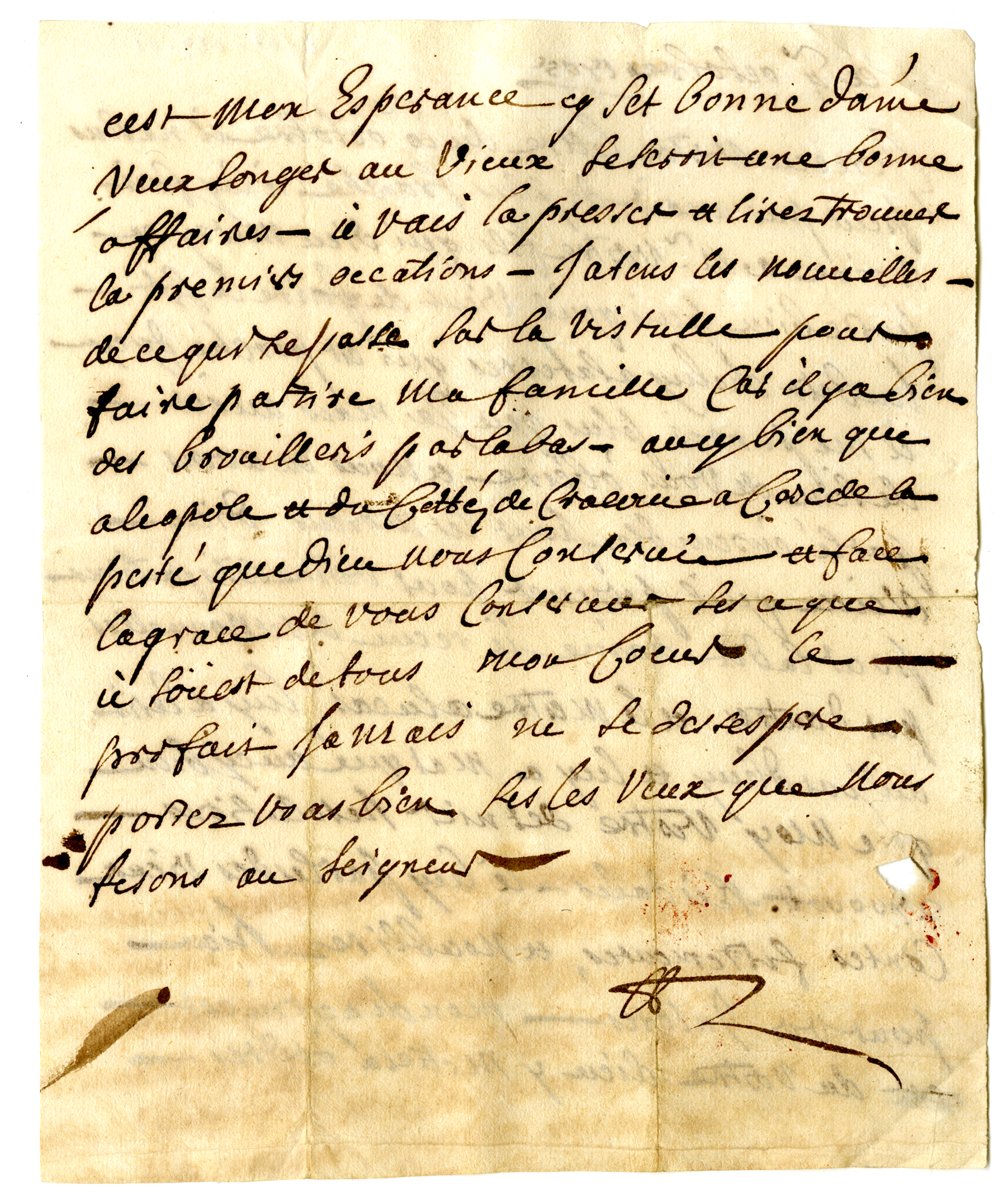 cest Mon Esperance cy set bonne dame
Veux songer au Vieux se seroit une bonne
affaires – ie vais la presser et lirez trouuer
la premirs occations – Jatens les nouuelles –
de ce qui se passe sur la Vistulle pour
faire partire Ma famille Car il y a bien
des brouilleris par la bas – aucy bien que
a leopole et du Cotté, de Cracovie a Cose de la
pesté que dieu nous Conserue et face
la grace de vous Conseruer ses ce que
ie souest de tous mon Coeur le —
prefait Jamais ne se desespere
portez vous bien ses les Veux que Nous
fesons au seigneur